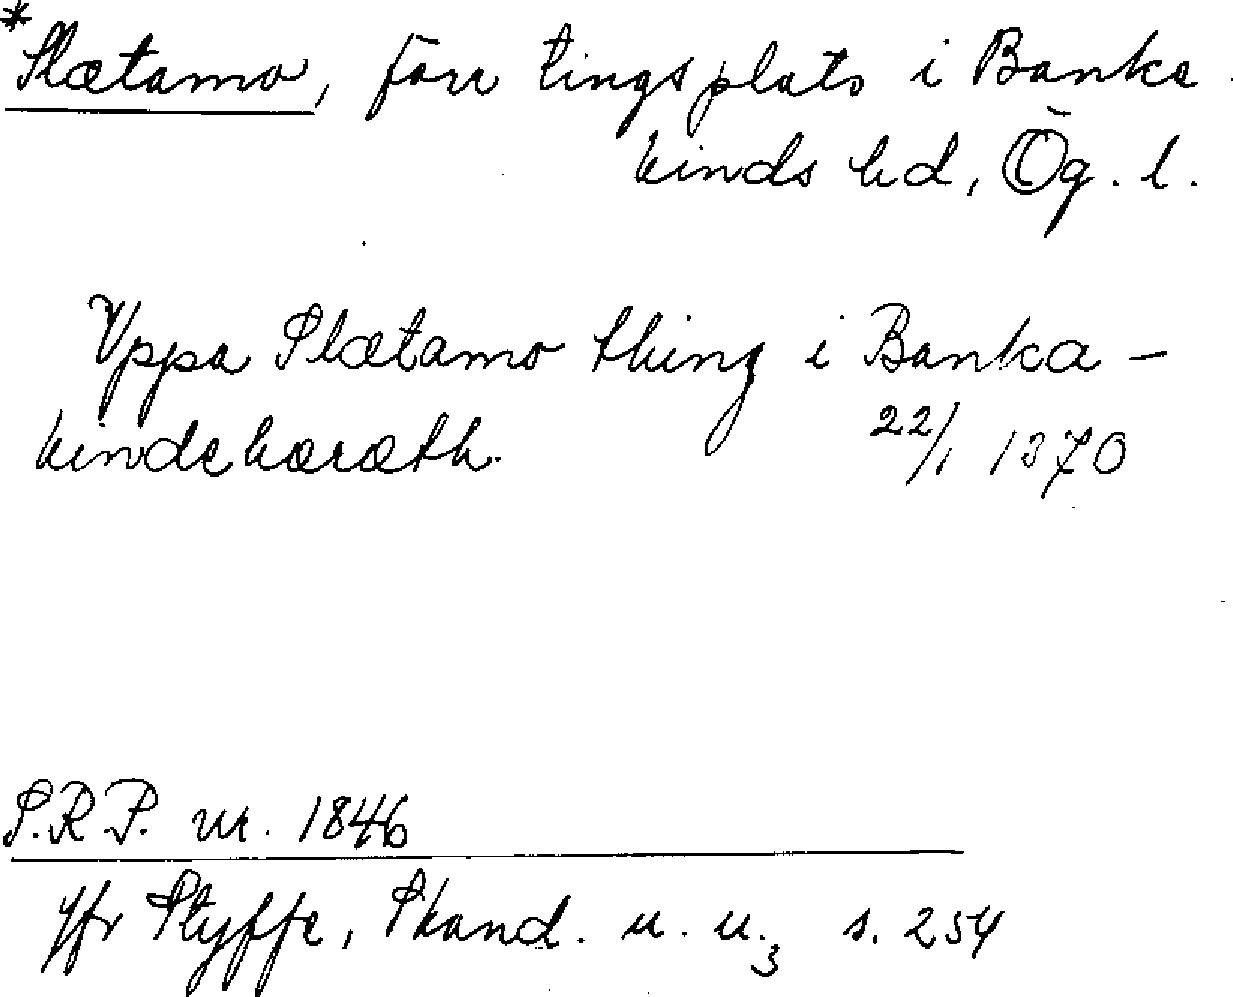 *Slætamo, förr tingsplats i Banke
kinds hd, Ög. l.
Uppa Slætamo thing i Banka-
kindehæræth. 22/1 1370
S.R.P. nr. 1846
Jfr Styffe, Skand. u. u.3 s. 254